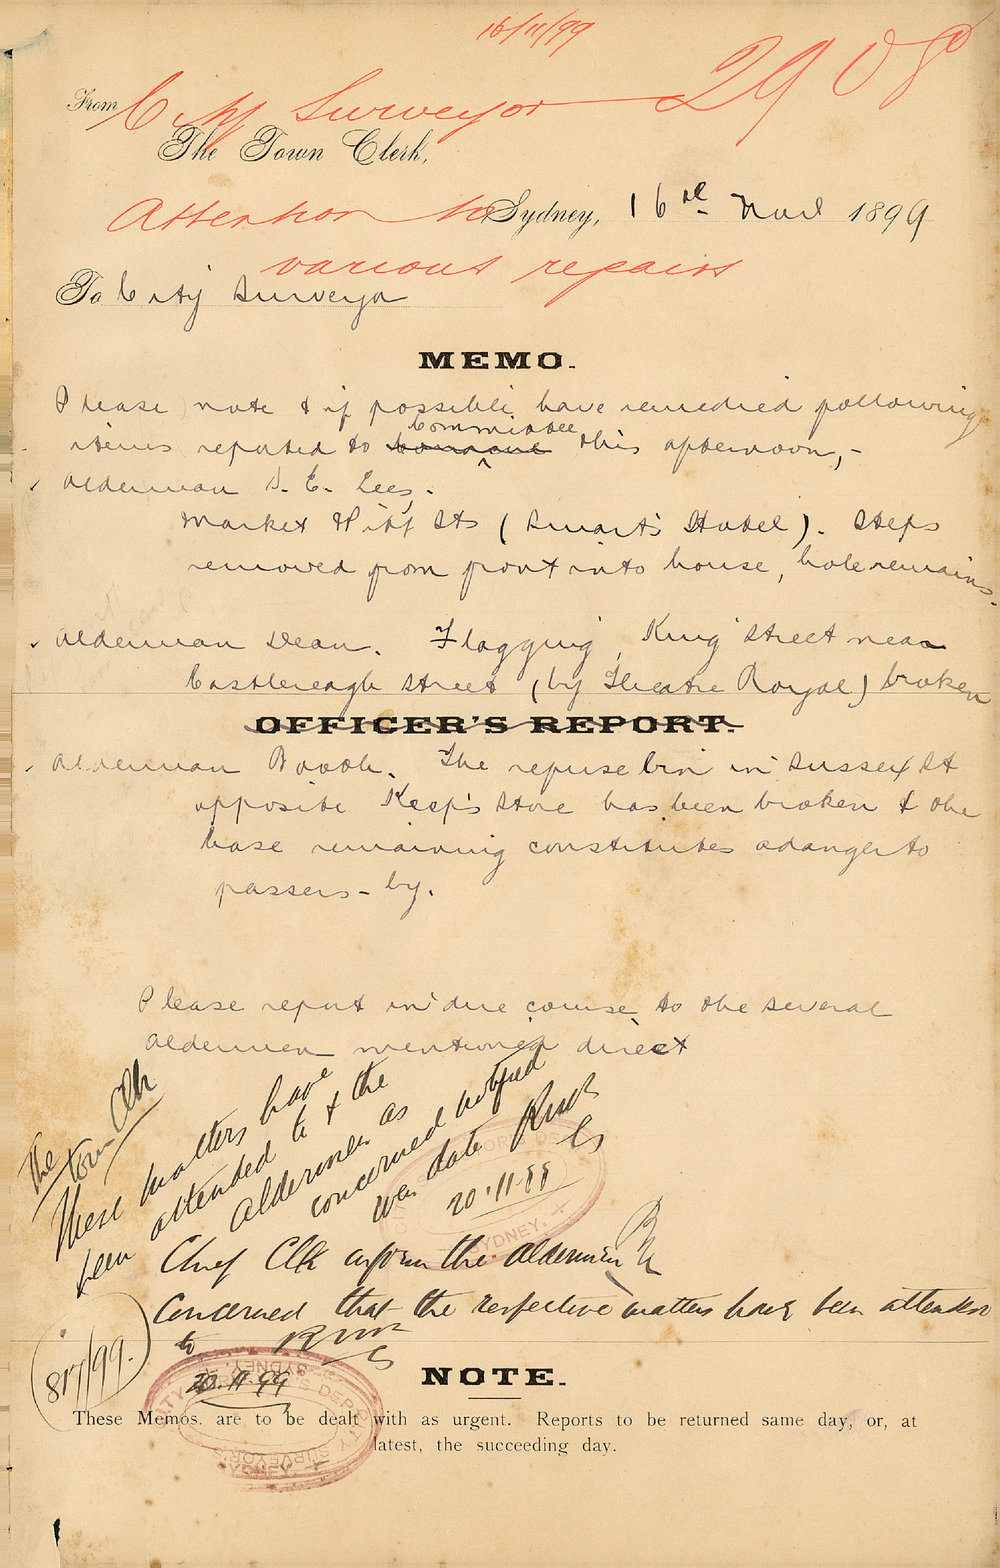 16/11/99
From City Surveyor 2908
The Town Clerk,
Attention to Sydney, 16th Novr 1899
various repairs
To City Surveyor
MEMO.
Please note & if possible, have remedied following
Committee
items reported to this afternoon,-
Alderman S. E. Lees.
Market & Pitt Sts (Smart's Hotel). Steps
removed from front into house, hole remains.
Alderman Dean. Flagging, King Street near
Castlereagh Street (by Theatre Royal) broken
OFFICER'S REPORT.
Alderman Booth. The refuse bin in Sussex St
opposite Keep's Store has been broken & the
base remaining constitutes a danger to
passers-by.
Please report in due course, to the several
aldermen mentioned direct
The Town Clk
These matters have
been attended to & the
Aldermen as
concerned notified
date
CS
20.11.99
Chief Clk inform the Aldermen
Concerned that the respective matters have been attended
to
CS
20.11.99
817/99.
NOTE.
These Memos. are to be dealt with as urgent. Reports to be returned same day, or, at
latest, the succeeding day.
CITY SURVEYOR'S DEPT
SYDNEY.